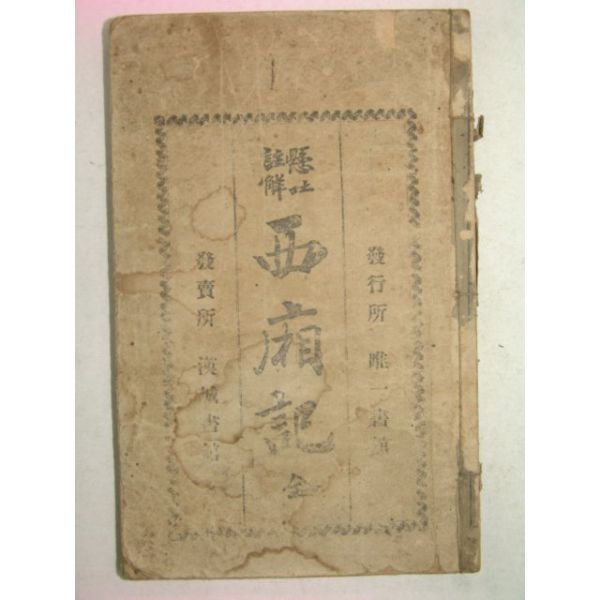 發行所 唯一書
懸吐
註解
西廂記 全
發賣所 漢城書館